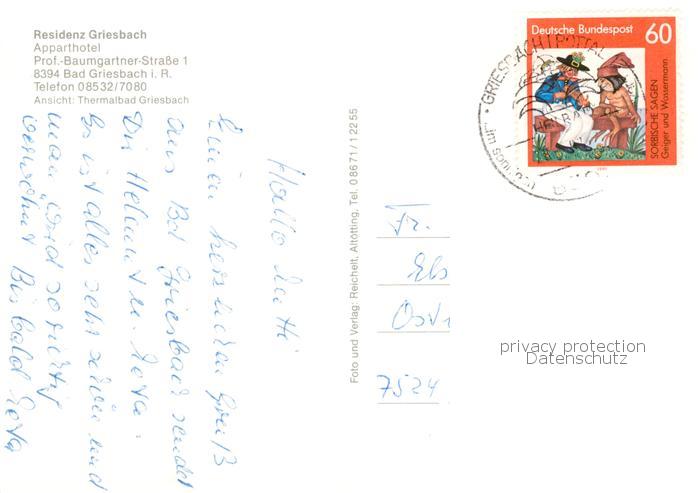 Residenz Griesbach
Apparthotel
Prof.-Baumgartner-Straße 1
8394 Bad Griesbach i. R.
Telefon 08532/7080
Ansicht: Thermalbad Griesbach
Hallo
Einen herzlichen Gruß
aus Bad Griesbach sendet
Dir Helmut u.
Es ist alles sehr schön und
man wird so richtig
verwöhnt Bis bald
Foto und Verlag: Reichelt, Altötting, Tel. 08671/12255
Deutsche Bundespost 60
SORBISCHE SAGEN
Geiger und Wassermann
GRIESBACH I ROTTAL
Fr.
7524
privacy protection
Datenschutz